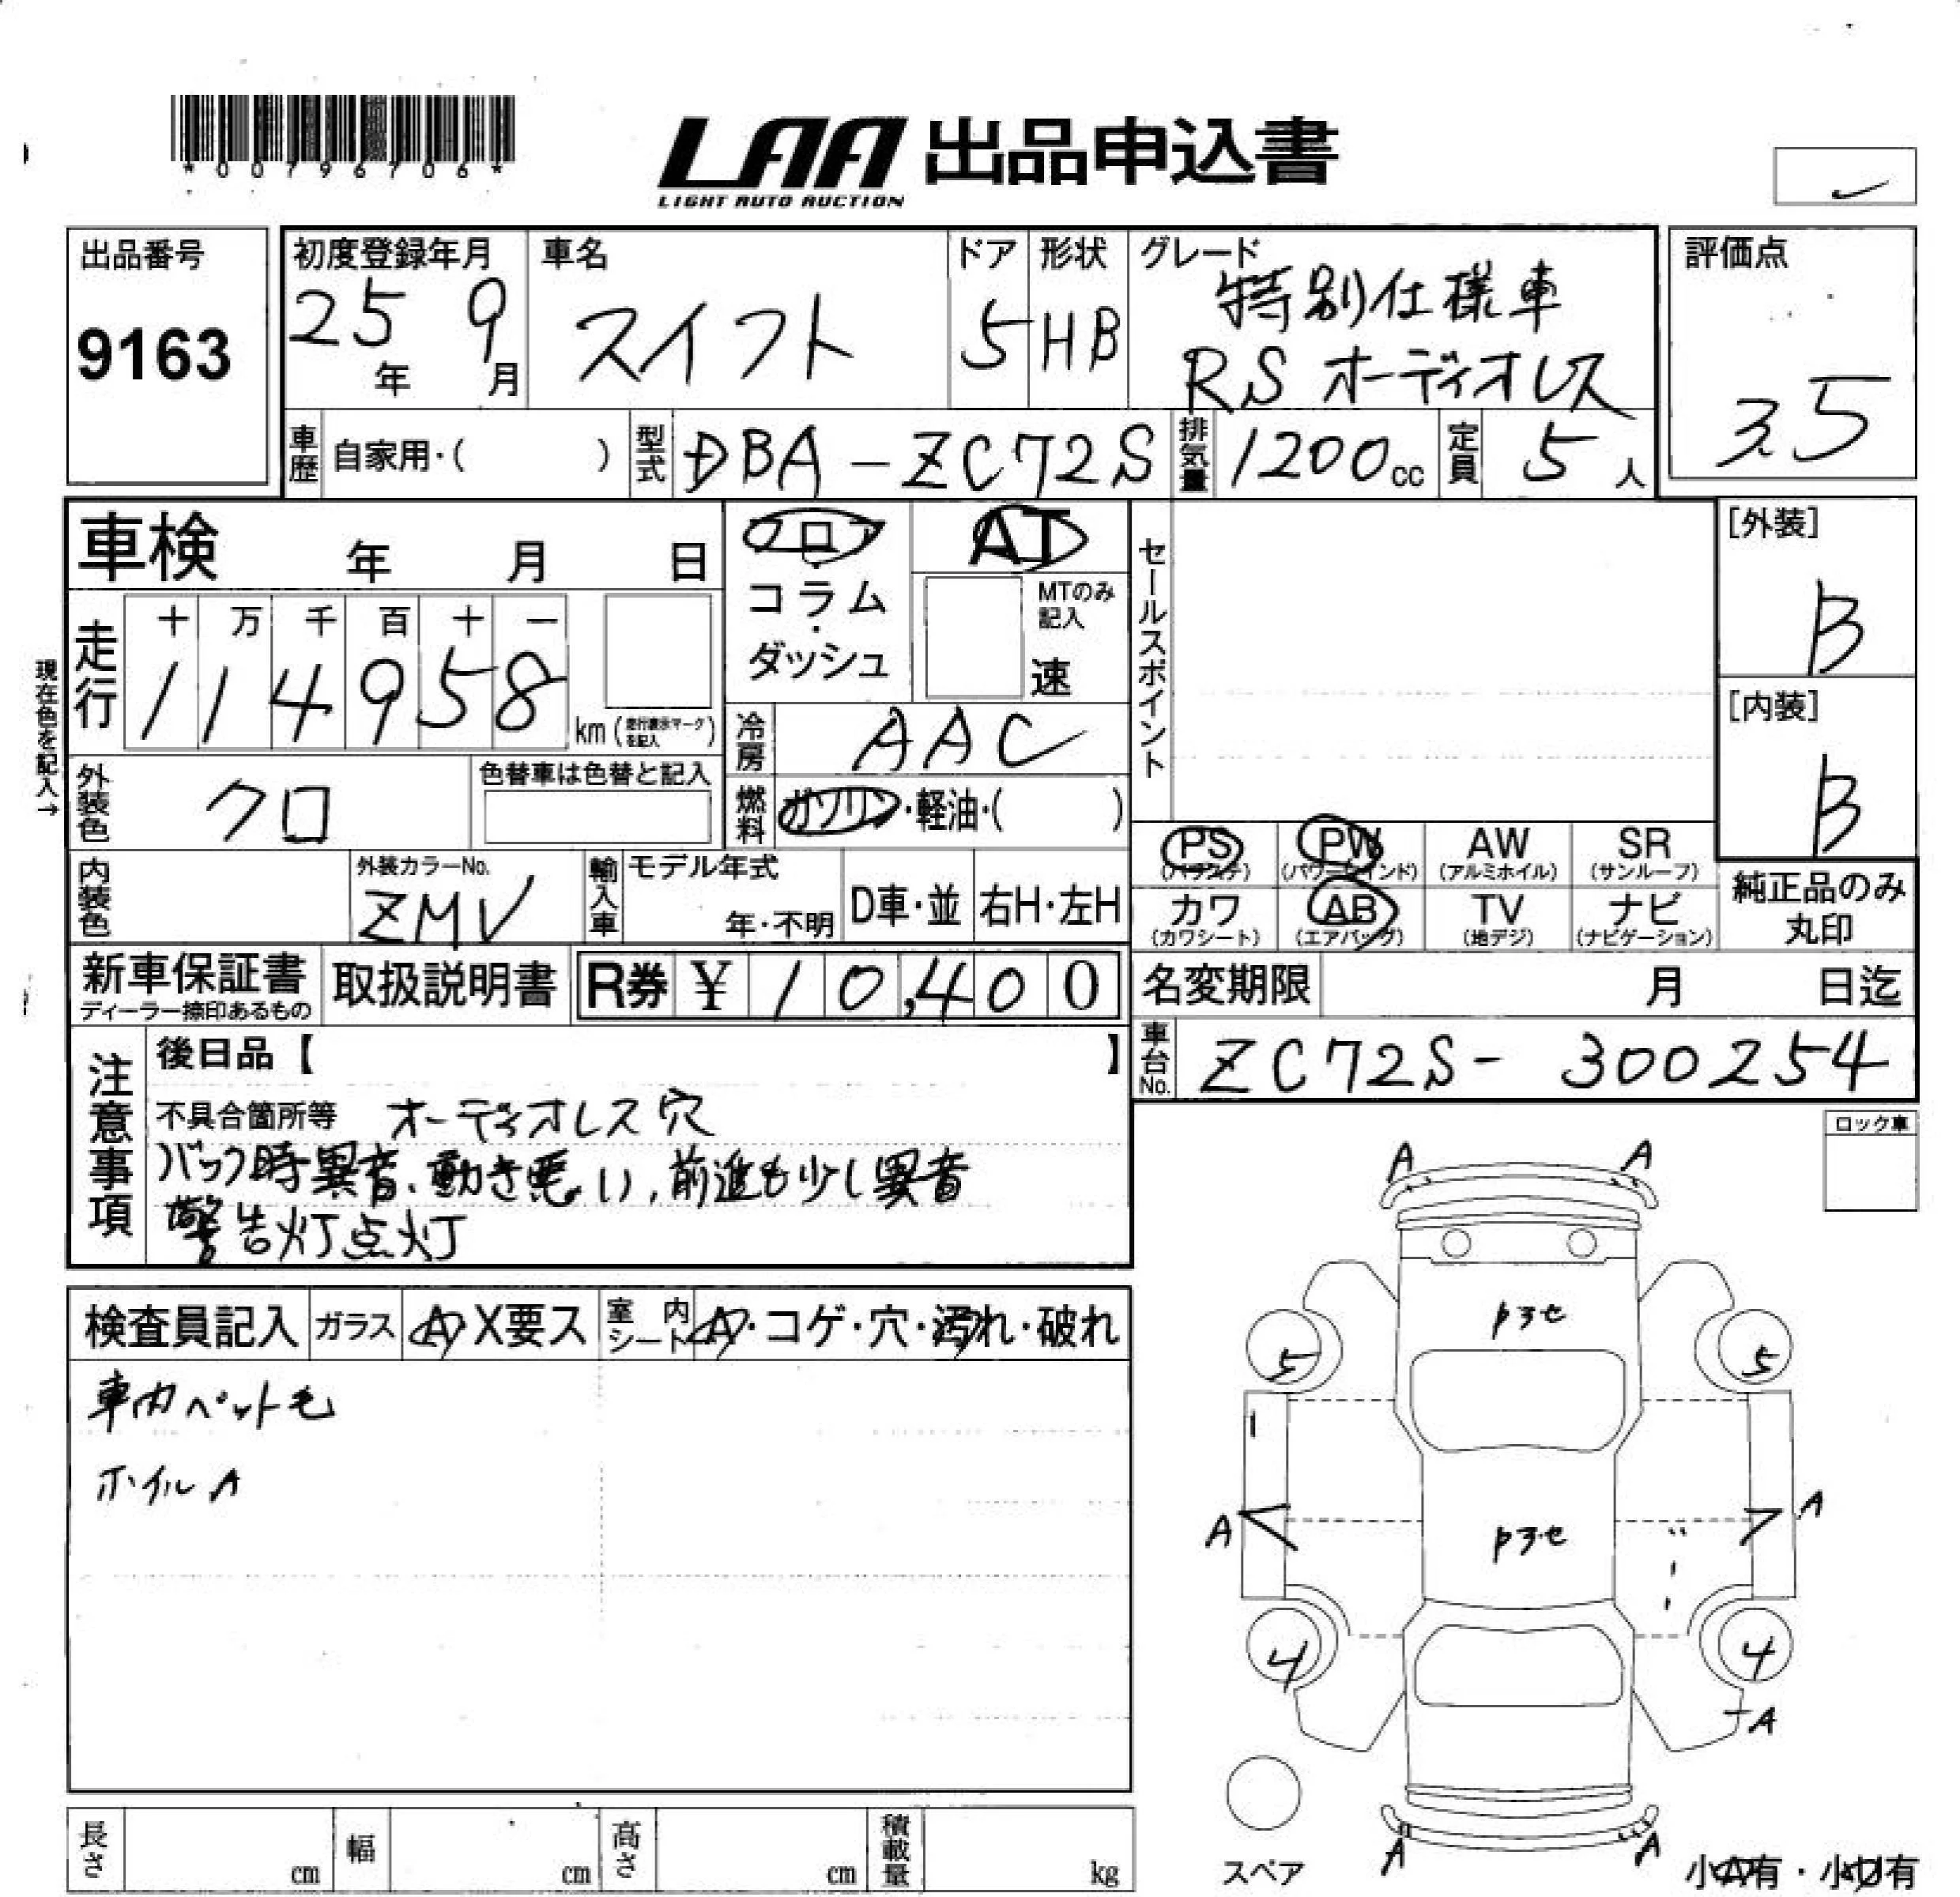 *00796706*
LAA 出品申込書
LIGHT AUTO AUCTION
出品番号
9163
初度登録年月
25年 9月
車名
スイフト
ドア
5
形状
HB
グレード
特別仕様車
RS オーディオレス
評価点
3.5
車歴 自家用・( )
型式 DBA-ZC72S
排気量 1200cc
定員 5人
車検 年 月 日
フロア
・
コラム
・
ダッシュ
AT
MTのみ
記入
速
セールスポイント
[外装]
B
[内装]
B
現在色を記入→
走行
十 万 千 百 十 一
1 1 4 9 5 8
km (走行表示マークを記入)
冷房 AAC
外装色 クロ
色替車は色替と記入
燃料 ガソリン・軽油・( )
PS
(パワステ)
PW
(パワーウインド)
AW
(アルミホイル)
SR
(サンルーフ)
内装色
外装カラーNo.
ZMV
輸入車
モデル年式
年・不明
D車・並
右H・左H
カワ
(カワシート)
AB
(エアバッグ)
TV
(地デジ)
ナビ
(ナビゲーション)
純正品のみ
丸印
新車保証書
ディーラー捺印あるもの
取扱説明書
R券 ¥ 10,400
名変期限 月 日迄
車台No. ZC72S- 300254
注意事項
後日品【 】
不具合箇所等 オーディオレス穴
バック時異音、動き悪い、前進も少し異音
警告灯点灯
ロック車
検査員記入
ガラス
A X要ス
室内シート
A・コゲ・穴・汚れ・破れ
車内ペット毛
ホイルA
A A
5 5
A A
4 4
A
A A
スペア
小A有・小U有
長さ cm
幅 cm
高さ cm
積載量 kg